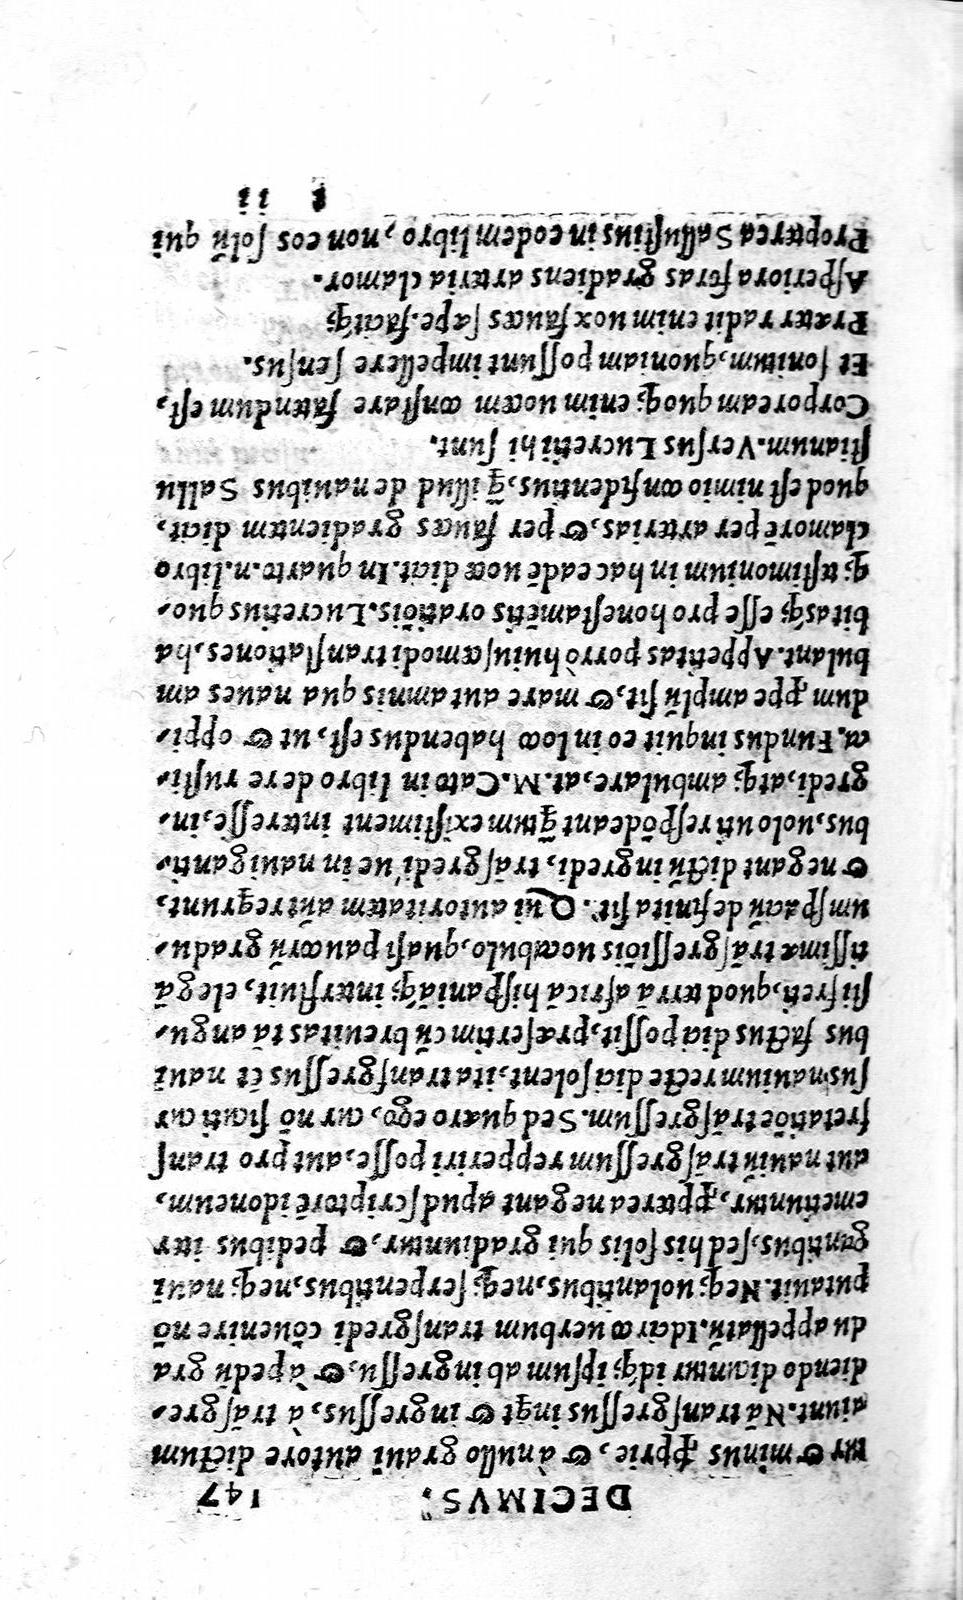 DECIMVS. 147
tur & minus ꝓprie, & à nullo graui autore dictum
aiunt. Nā transgressus inqt & ingressus, à trāsgre-
diendo dicuntur idq; ipsum ab ingressu, & à pedū gra
du appellatū. Idcirco uerbum transgredi cōuenire nō
putauit. Neq; uolantibus, neq; serpentibus, neq; naui
gantibus, sed his solis qui gradiuntur, & pedibus iter
emetiuntur, ꝓpterea negant apud scriptorē idoneum,
aut nauiū trāsgressum repperiri posse, aut pro transf
fretatiōe trāsgressum. Sed quæro ego, cur nō sicuti cur
sus nauium recte dici solent, ita transgressus ét naui
bus factus dici possit, præsertim cū breuitas tā angu-
sti freti, quod terrā africā hispaniāq; interfluit, elegā
tissimæ trāsgressiōis uocabulo, quasi paucorū gradu-
um spaciū definita sit. Qui autoritatem aūt requrunt,
& negant dictū ingredi, trāsgredi ue in nauiganti-
bus, uolo uti respōdeant q̄tum existiment interesse, in-
gredi, atq; ambulare, at. M. Cato in libro de re rusti-
ca. Fundus inquit eo in loco habendus est, ut & oppi-
dum ꝓpe amplū sit, & mare aut amnis qua naues am
bulant. Appetitas porro huiuscemodi translationes, ha
bitasq; esse pro honestamētis oratiōis. Lucretius quo-
q; testimonium in hac eadē uoce dicit. In quarto. n. libro
clamorē per arterias, & per fauces gradientem dicit,
quod est nimio confidentius, q̄ illud de nauibus Sallu
stianum. Versus Lucretii hi sunt.
Corpoream quoq; enim uocem constare fatendum est,
Et sonitum, quoniam possunt impellere sensus.
Præter radit enim uox fauces sæpe. facitq;
Asperiora foras gradiens arteria clamor.
Propterea Sallustius in eodem libro, non eos solū qui
t ii